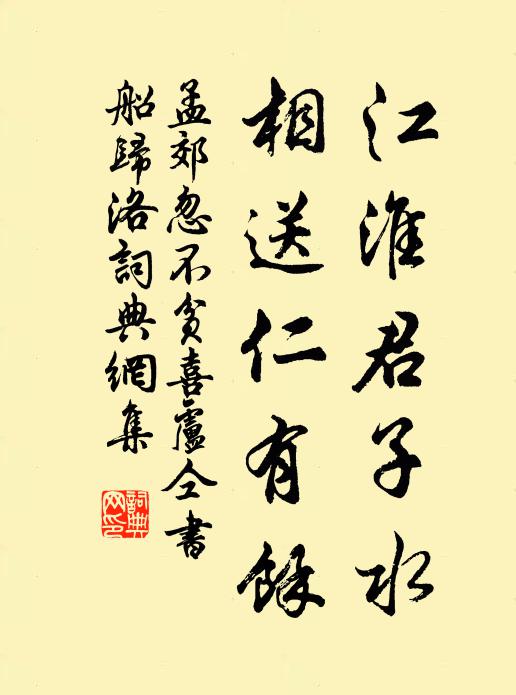 江淮君子水
相送仁有餘
孟郊忽不貧喜盧仝書
船歸洛詞典網集
詞典
网印